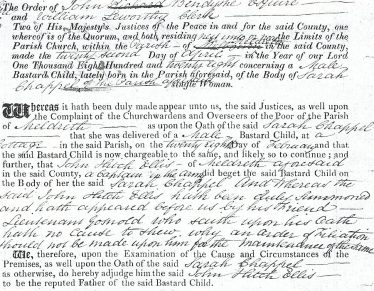 The Order of John Bendyshe Esquire
and William Leworthy Clerk
Two of His Majesty's Justices of the Peace in and for the said County, one
whereof is of the Quorum, and both residing next unto the Limits of the
Parish Church, within the Parish of
made the Twenty second Day of April in the Year of our Lord
One Thousand Eight Hundred and Twenty eight concerning a Male
Bastard Child, lately born in the Parish aforesaid, of the Body of Sarah
Chappel Single Woman.
Whereas it hath been duly made appear unto us, the said Justices, as well upon
the Complaint of the Churchwardens and Overseers of the Poor of the Parish
of Meldreth as upon the Oath of the said Sarah Chappel
that she was delivered of a Male Bastard Child, at a
Cottage in the said Parish, on the Twenty eighth Day of February and that
the said Bastard Child is now chargeable to the same, and likely so to continue; and
further, that John Hitch Ellis of Meldreth aforesaid
in the said County, a Captain in the army did beget the said Bastard Child on
the Body of her the said Sarah Chappel And Whereas the
said John Hitch Ellis hath been duly summoned
and hath appeared before us by his Friend
Lieutenant who saith upon his Oath
hath no cause to shew, why an order of filiation
should not be made upon him for the maintenance of the same
We, therefore, upon the Examination of the Cause and Circumstances of the
Premises, as well upon the Oath of the said Sarah Chappel
as otherwise, do hereby adjudge him the said John Hitch Ellis
to be the reputed Father of the said Bastard Child.